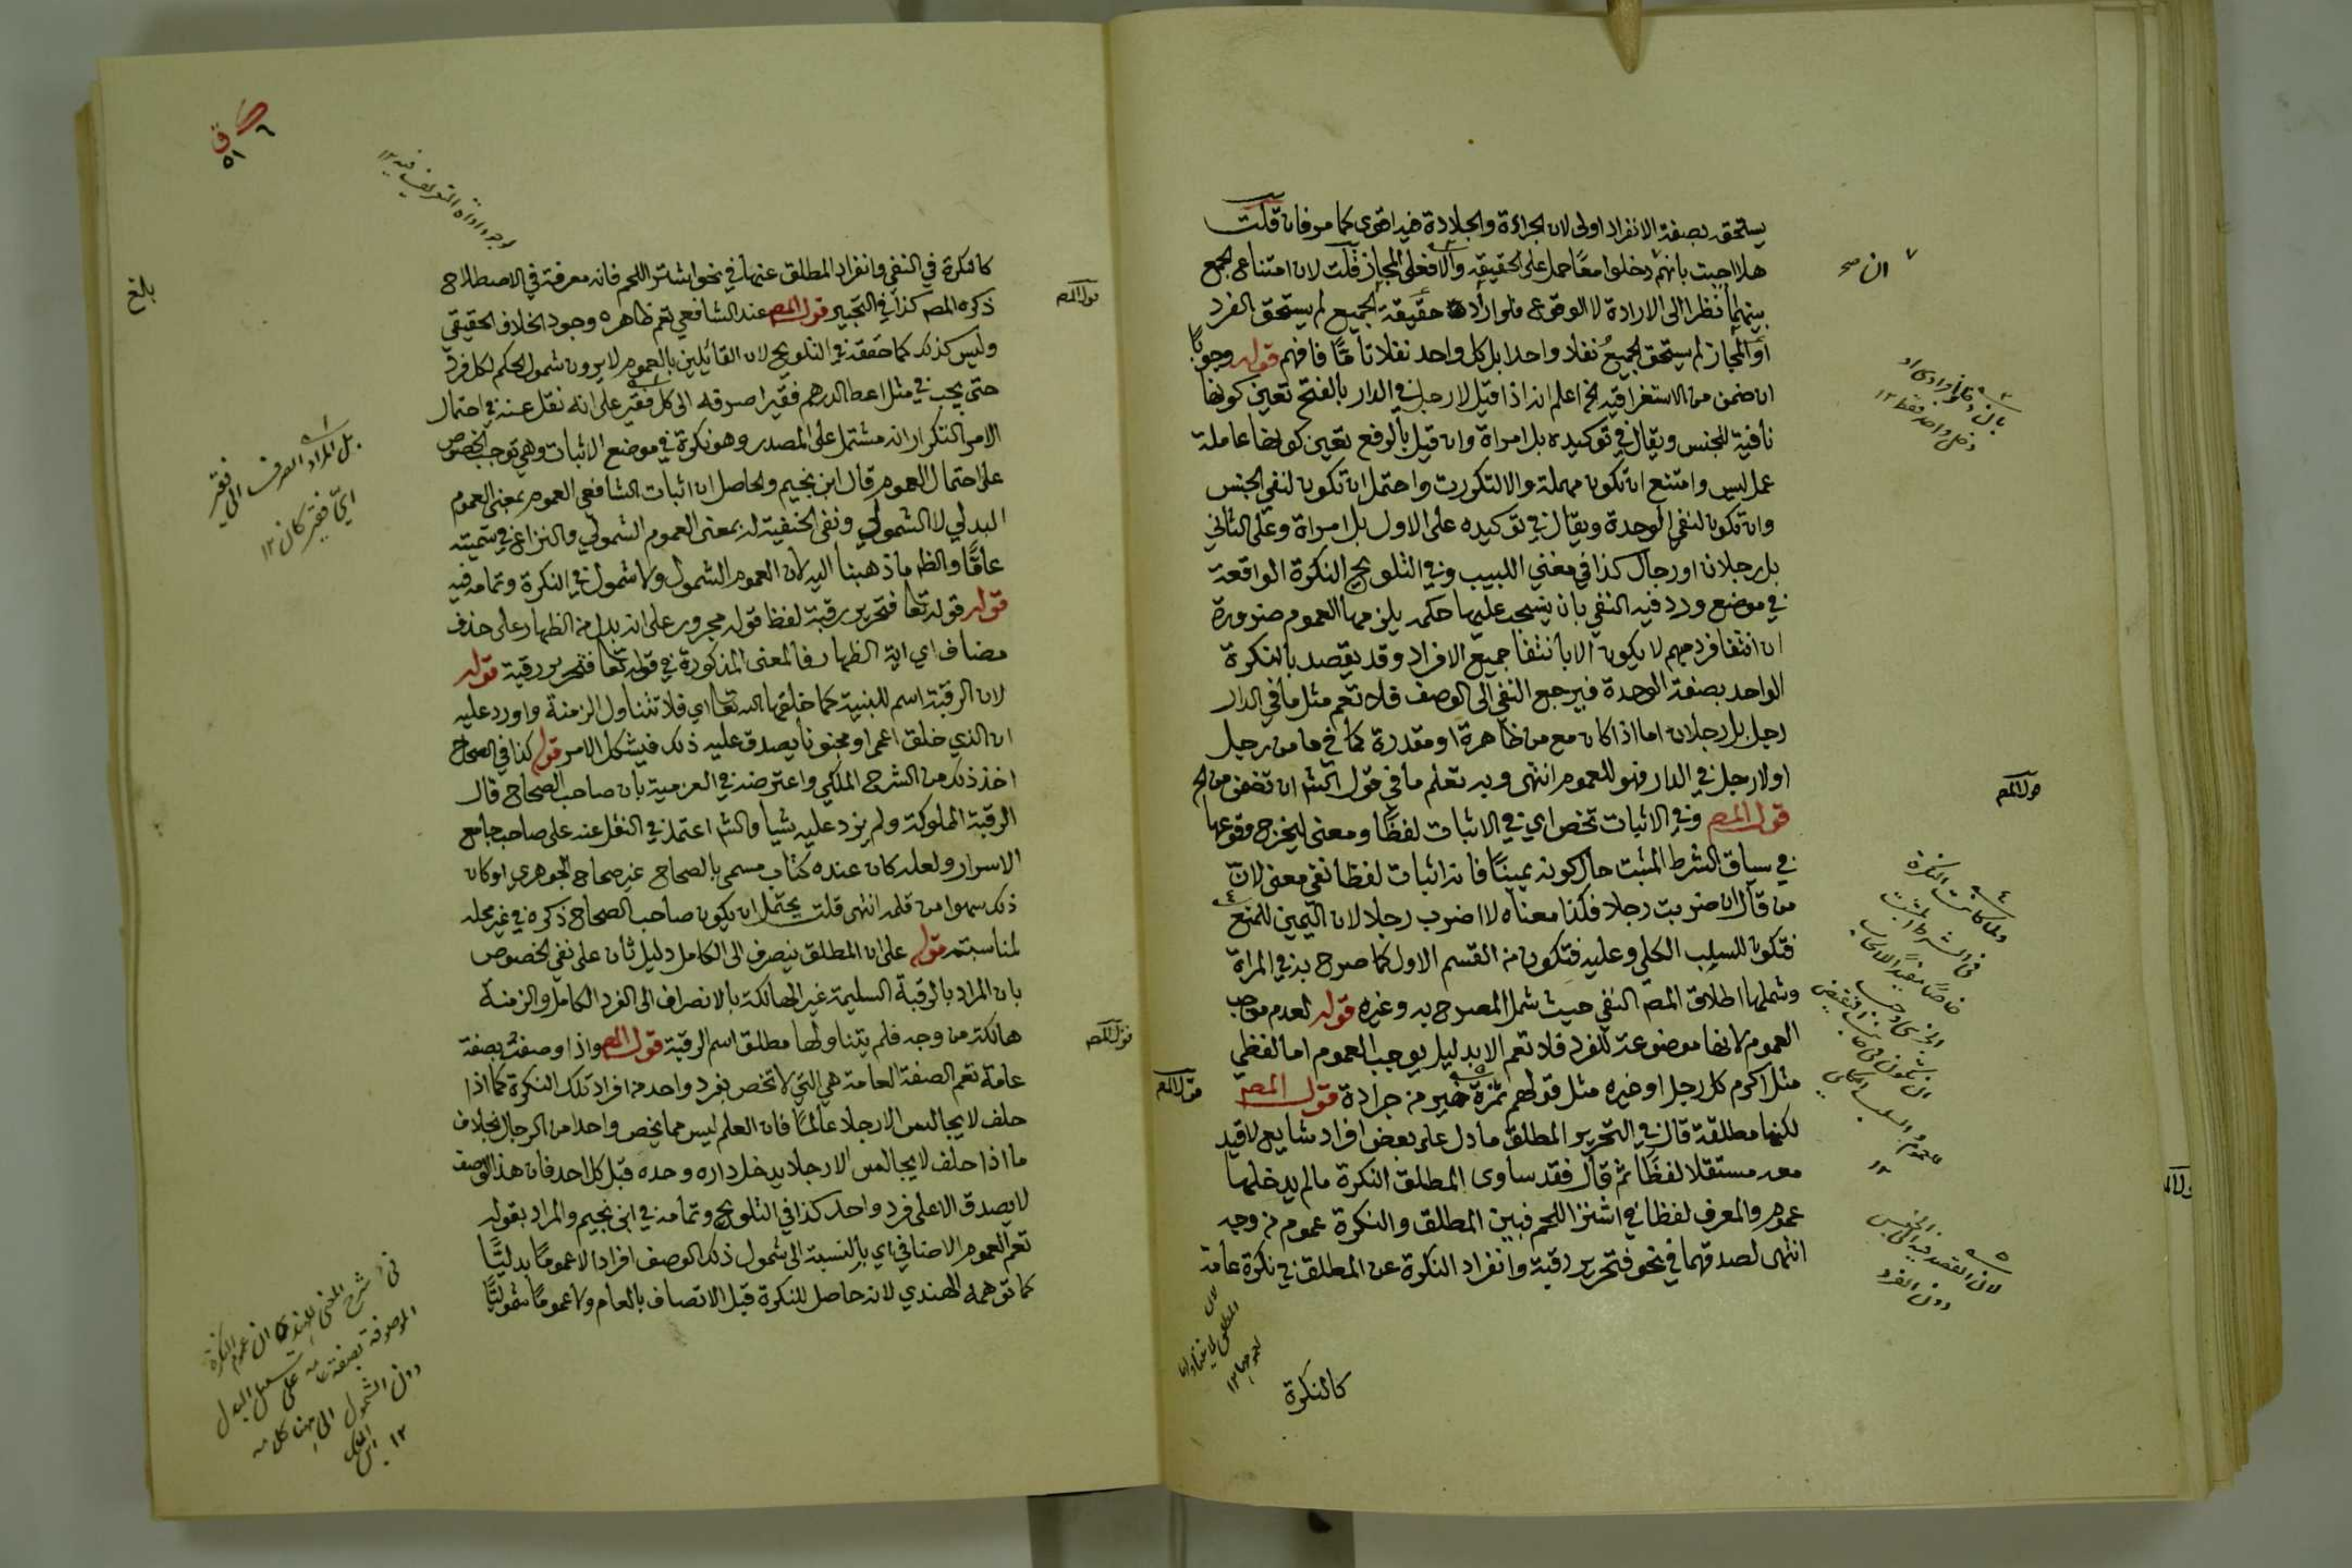 يستحقه بصفة الانفراد اولى لان الجراءة والجلادة فيه اقوى كما مر فان قلت
هلا اجبت بانهم دخلوا معًا حمل على الحقيقة والا فعلى المجاز قلت لان امتناع الجمع
بينهما نظرا الى الارادة لا الوقوع فلو اراد حقيقة الجميع لم يستحق الفرد
او المجاز لم يستحق الجميعُ نفلا واحدا بل كل واحد نفلا تامًّا فافهم قوله وجوبًا
ان ضمن من الاستغراقية الخ اعلم انه اذا قيل لا رجل في الدار بالفتح تعين كونها
نافية للجنس ويقال في توكيده بل امراة وان قيل بالرفع تعين كونها عاملة
عمل ليس وامتنع ان تكون مهملة والا لتكررت واحتمل ان تكون لنفي الجنس
وان تكون لنفي الوحدة ويقال في توكيده على الاول بل امراة وعلى الثاني
بل رجلان او رجال كذا في مغني اللبيب وفي التلويح النكرة الواقعة
في موضع ورد فيه النفي بان ينسحب عليها حكمه يلزمها العموم ضرورة
ان انتفا فرد مبهم لا يكون الا بانتفا جميع الافراد وقد يقصد بالنكرة
الواحد بصفة الوحدة فيرجع النفي الى الوصف فلا تعم مثل ما في الدار
رجل بل رجلان اما اذا كان مع من ظاهرة او مقدرة كما في ما من رجل
او لا رجل في الدار فهو للعموم انتهى وبه تعلم ما في قول الشم ان تضمن من الخ
قول المصه وفي الاثبات تخص اي في الاثبات لفظًا ومعنى ليخرج وقوعها
في سياق الشرط المثبت حال كونه يمينًا فانه اثبات لفظا نفي معنى لان
من قال ان ضربت رجلا فكذا معناه لا اضرب رجلا لان اليمين للمنع
فتكون للسلب الكلي وعليه فتكون من القسم الاول كما صرح به في المراة
وشملها اطلاق المصه النفي حيث شمل المصرح به وغيره قوله لعدم موجب
العموم لانها موضوعة للفرد فلا تعم الا بدليل يوجب العموم اما لفظي
مثل اكرم كل رجل او غيره مثل قولهم تمرة خير من جرادة قول المصه
لكنها مطلقة قال في التحرير المطلق ما دل على بعض افراد شايع لا قيد
معه مستقلا لفظًا ثم قال فقد ساوى المطلق النكرة ما لم يدخلها
عموم والمعرف لفظا في اشتر اللحم فبين المطلق والنكرة عموم من وجه
انتهى لصدقهما في نحو فتحرير رقبة وانفراد النكرة عن المطلق في نكرة عامة
كالنكرة
ان صح
قول المصه
لان القصد فيه الى الجنس
دون الفرد
كالنكرة في النفي وانفراد المطلق عنها في نحو اشتر اللحم فانه معرفة في الاصطلاح
ذكره المصه كذا في التحبير قول المصه عند الشافعي تعم ظاهره وجود الخلاف الحقيقي
وليس كذلك كما حققه في التلويح لان القائلين بالعموم لا يرون شمول الحكم لكل فرد
حتى يجب في مثل اعط الدرهم فقيرا صرفه الى كل فقير على انه نقل عنه في احتمال
الامر التكرار انه مشتمل على المصدر وهو نكرة في موضع الاثبات وهي توجب الخصوص
على احتمال العموم قال ابن نجيم والحاصل ان اثبات الشافعي العموم بمعنى العموم
البدلي لا الشمولي ونفى الحنفية له بمعنى العموم الشمولي والنزاع في تسميته
عامًّا والظه ما ذهبنا اليه لان العموم الشمول ولا شمول في النكرة وتمامه فيه
قوله قوله تعا فتحرير رقبة لفظ قوله مجرور على انه بدل من الظهار على حذف
مضاف اي اية الظهار فالمعنى المذكورة في قوله تعا فتحرير رقبة قوله
لان الرقبة اسم للبنية كما خلقها الله تعا اي فلا تتناول الزمنة واورد عليه
ان الذي خلق اعمى او مجنونا يصدق عليه ذلك فيشكل الامر قوله كذا في الصحاح
اخذ ذلك من الشرح الملكي واعترضه في العزمية بان صاحب الصحاح قال
الرقبة المملوكة ولم يزد عليه شيأ والشه اعتمد في النقل عنه على صاحب جامع
الاسرار ولعله كان عنده كتاب مسمى بالصحاح غير صحاح الجوهري او كان
ذلك سهوا من قلمه انتهى قلت يحتمل ان يكون صاحب الصحاح ذكره في غير محله
لمناسبته قوله على ان المطلق ينصرف الى الكامل دليل ثان على نفي الخصوص
بان المراد بالرقبة السليمة غير الهالكة بالانصراف الى الفرد الكامل والزمنة
هالكة من وجه فلم يتناولها مطلق اسم الرقبة قول المصه واذا وصفت بصفة
عامة تعم الصفة العامة هي التي لا تخص بفرد واحد من افراد تلك النكرة كما اذا
حلف لا يجالس الا رجلا عالمًا فان العلم ليس مما يخص واحدا من الرجال بخلاف
ما اذا حلف لا يجالس الا رجلا يدخل داره وحده قبل كل احد فان هذا الوصف
لا يصدق الا على فرد واحد كذا في التلويح وتمامه في ابن نجيم والمراد بقوله
تعم العموم الاضافي اي بالنسبة الى شمول ذلك الوصف افراده لا عمومًا بدليًّا
كما توهمه الهندي لانه حاصل للنكرة قبل الاتصاف بالعام ولا عمومًا شموليًّا
وجود اداة التعريف فيه ١٢
قول المصه
بلغ
بل المراد الصرف الى فقير
ايّ فقير كان ١٢
قول المصه